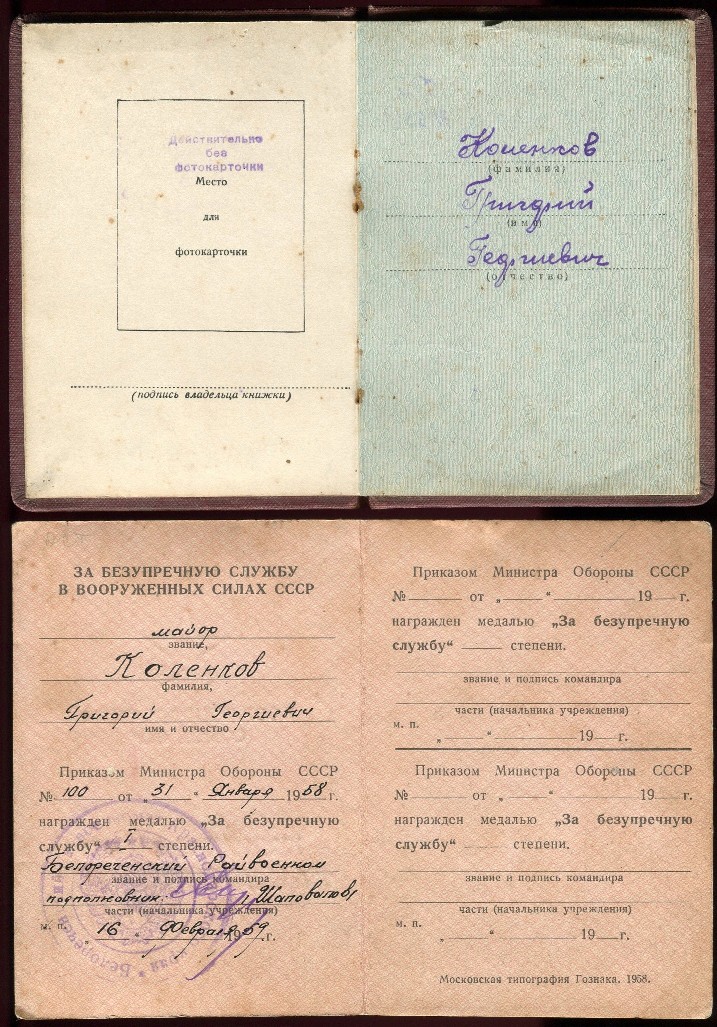 Действительно
без
фотокарточки
Место
для
фотокарточки
(подпись владельца книжки)
Коленков
(фамилия)
Григорий
(имя)
Георгиевич
(отчество)
ЗА БЕЗУПРЕЧНУЮ СЛУЖБУ
В ВООРУЖЕННЫХ СИЛАХ СССР
майор
звание,
Коленков
фамилия,
Григорий Георгиевич
имя и отчество
Приказом Министра Обороны СССР
№ 100 от „31“ Января 1958 г.
награжден медалью „За безупречную
службу“ I степени.
Белореченский Райвоенком
звание и подпись командира
подполковник: Шаповалов
части (начальника учреждения)
м. п. „16“ Февраля 1959 г.
Приказом Министра Обороны СССР
№ от „ “ 19 г.
награжден медалью „За безупречную
службу“ степени.
звание и подпись командира
части (начальника учреждения)
м. п.
„ “ 19 г.
Приказом Министра Обороны СССР
№ от „ “ 19 г.
награжден медалью „За безупречную
службу“ степени.
звание и подпись командира
части (начальника учреждения)
м. п.
„ “ 19 г.
Московская типография Гознака. 1958.